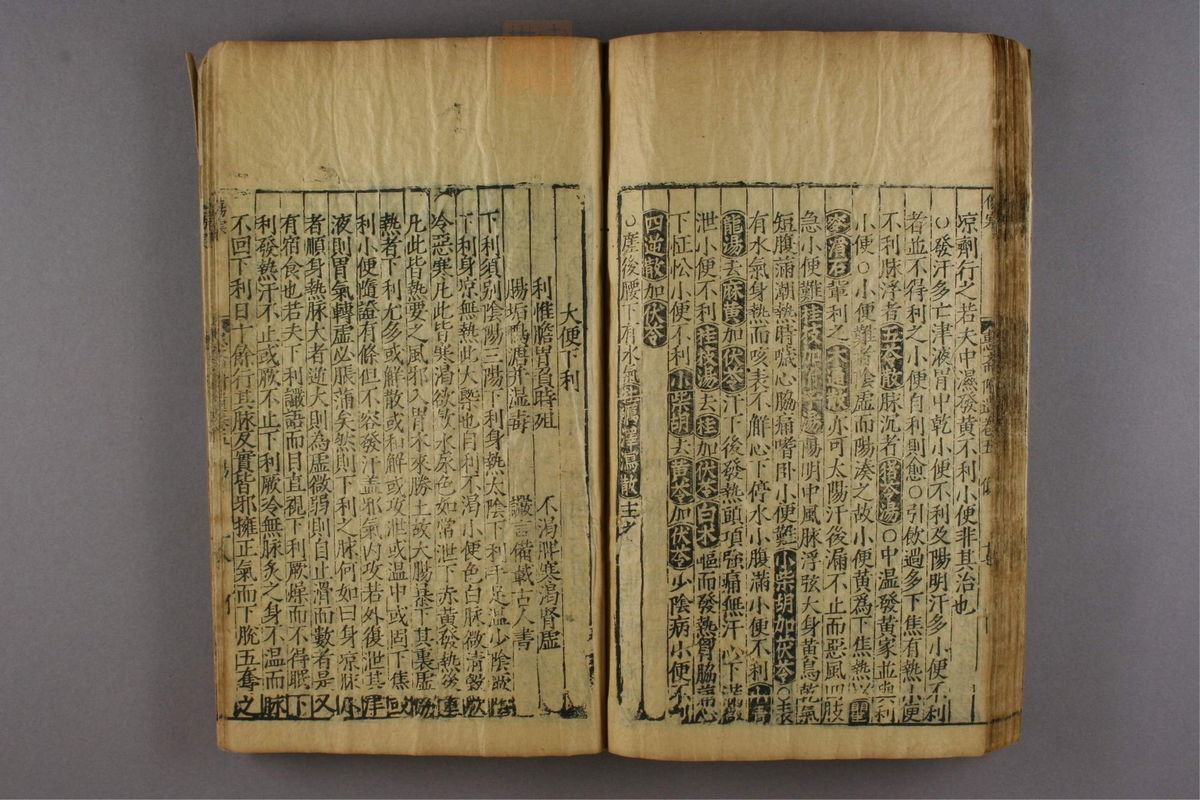 凉劑行之若夫中濕發黃不利小便非其治也
○發汗多亡津液胃中乾小便不利及陽明汗多小便不利
者並不得利之小便自利則愈○引飲過多下焦有熱小便
不利脉浮者五苓散脉沉者猪苓湯○中温發黃家並與利
小便○小便難者陰虛而陽湊之故小便黃爲下焦熱
滑石輩利之亦可太陽汗後漏不止而惡風四肢
急小便難桂枝加附子湯陽明中風脉浮弦大身黃鳥乾氣
短腹滿潮熱時噦心脇痛嗜卧小便難小柴胡加茯苓○表
有水氣身熱而咳表不觧心下停水小腹滿小便不利小青
龍湯去麻黃加茯苓汗下後發熱頭項強痛無汗心下滿微
泄小便不利桂枝湯去桂加茯苓白术嘔而發熱胷脇痛心
下怔忪小便不利小柴胡去黃芩加茯苓少陰病小便不利
四逆散加茯苓
○差後腰下有水氣牡蠣澤瀉散主之
大便下利
利惟膽胃負時殂 不渴脾寒渴腎虛
腸垢鴨溏并溫毒 讝言備載古人書
下利須别陰陽三陽下利身熱太陰下利手足温少陰厥陰
下利身凉無熱此大槩也自利不渴小便色白脉微清穀飲
冷惡寒凡此皆寒渴欲飲水尿色如常泄下赤黃發熱後重
凡此皆熱要之風邪入胃木來勝土故大腸暴下其裏虛
熱者下利尤多或觧散或和解或攻泄或温中或固下焦或
利小便隨證有條但不容發汗盖邪氣内攻若外復泄其津
液則胃氣轉虛必脹滿矣然則下利之脉何如曰身凉脉小
者順身熱脉大者逆大則為虛微弱則自止滑而數者是
有宿食也若夫下利讝語而目直視下利厥燥而不得眠下
利發熱汗不止或厥不止下利厥冷無脉灸之身不温而脉
不回下利日十餘行其脉反實皆邪擁正氣而下脫五奪之